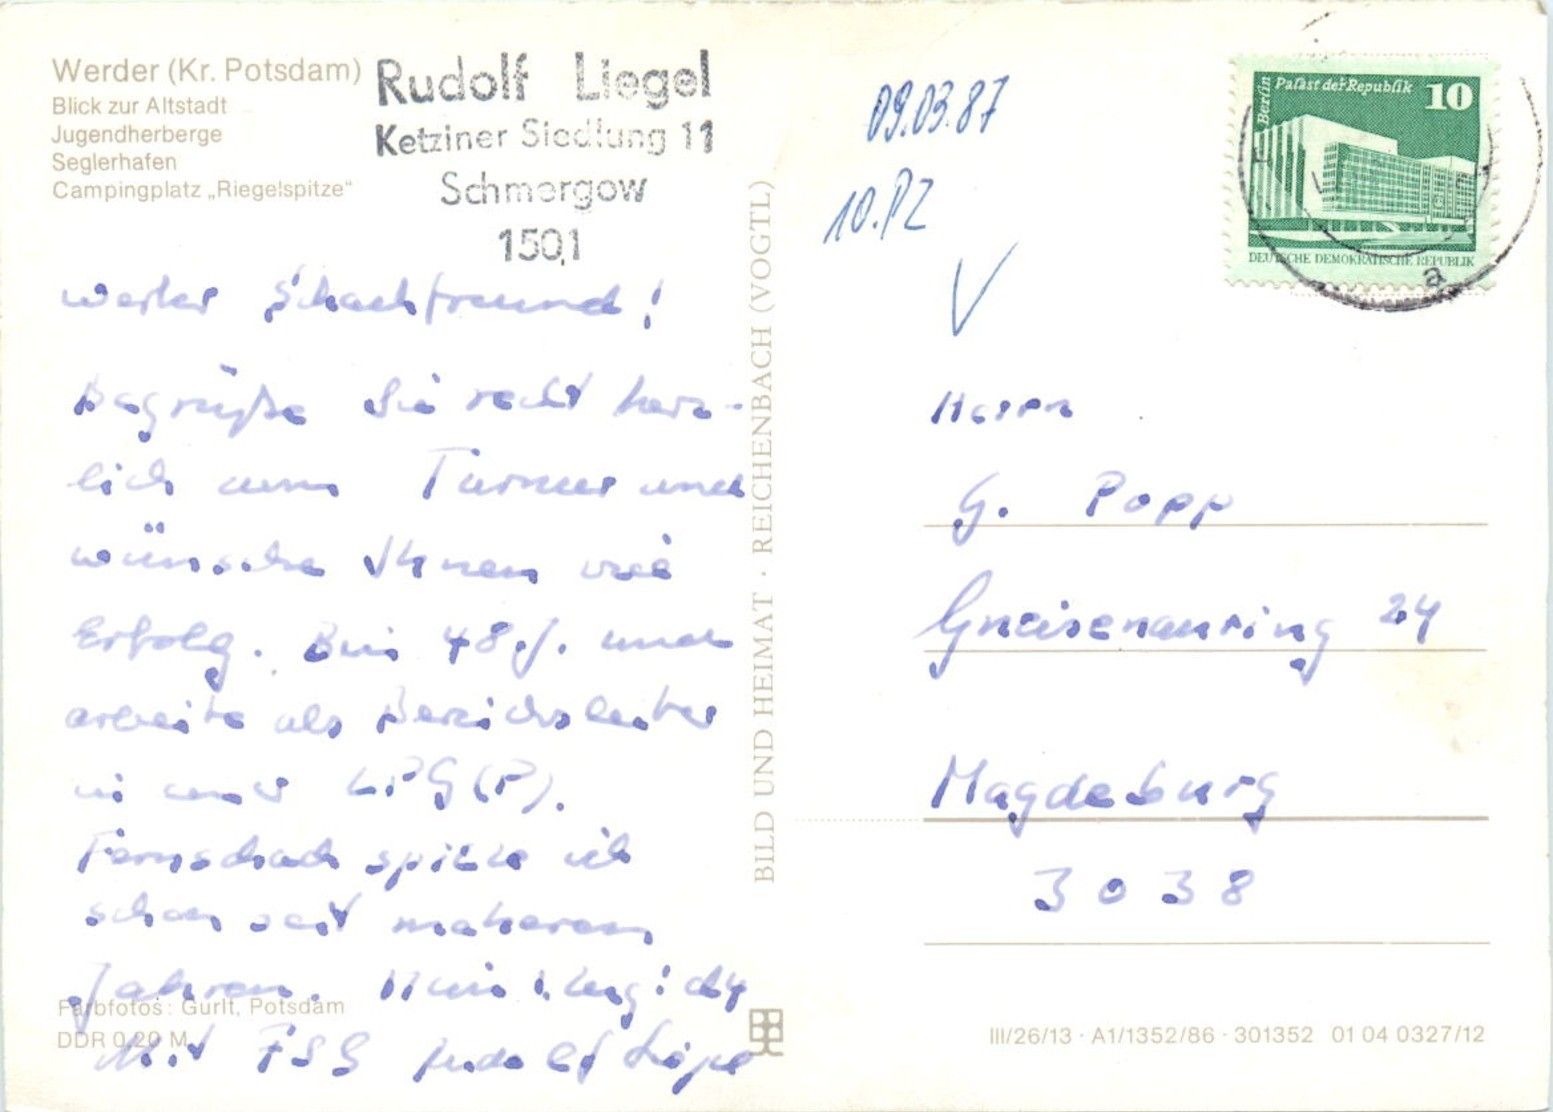 Werder (Kr. Potsdam)
Blick zur Altstadt
Jugendherberge
Seglerhafen
Campingplatz „Riegelspitze“
Rudolf Liegel
Ketziner Siedlung 11
Schmergow
1501
werter Schachfreund!
Begrüße Sie recht herz-
lich zum Turnier und
wünsche Ihnen viel
Erfolg. Bin 48 J. und
arbeite als Bereichsleiter
in einer LPG (P).
Fernschach spiele ich
schon seit mehreren
Jahren. Mein 1. Zug: d4
Mit FSG Rudolf Liegel
Farbfotos: Gurlt, Potsdam
DDR 0,20 M
BILD UND HEIMAT · REICHENBACH (VOGTL)
09.03.87
10.PZ
Berlin
Palast der Republik
10
DEUTSCHE DEMOKRATISCHE REPUBLIK
a
Herrn
G. Popp
Gneisenauring 24
Magdeburg
3038
III/26/13 · A1/1352/86 · 301352 01 04 0327/12